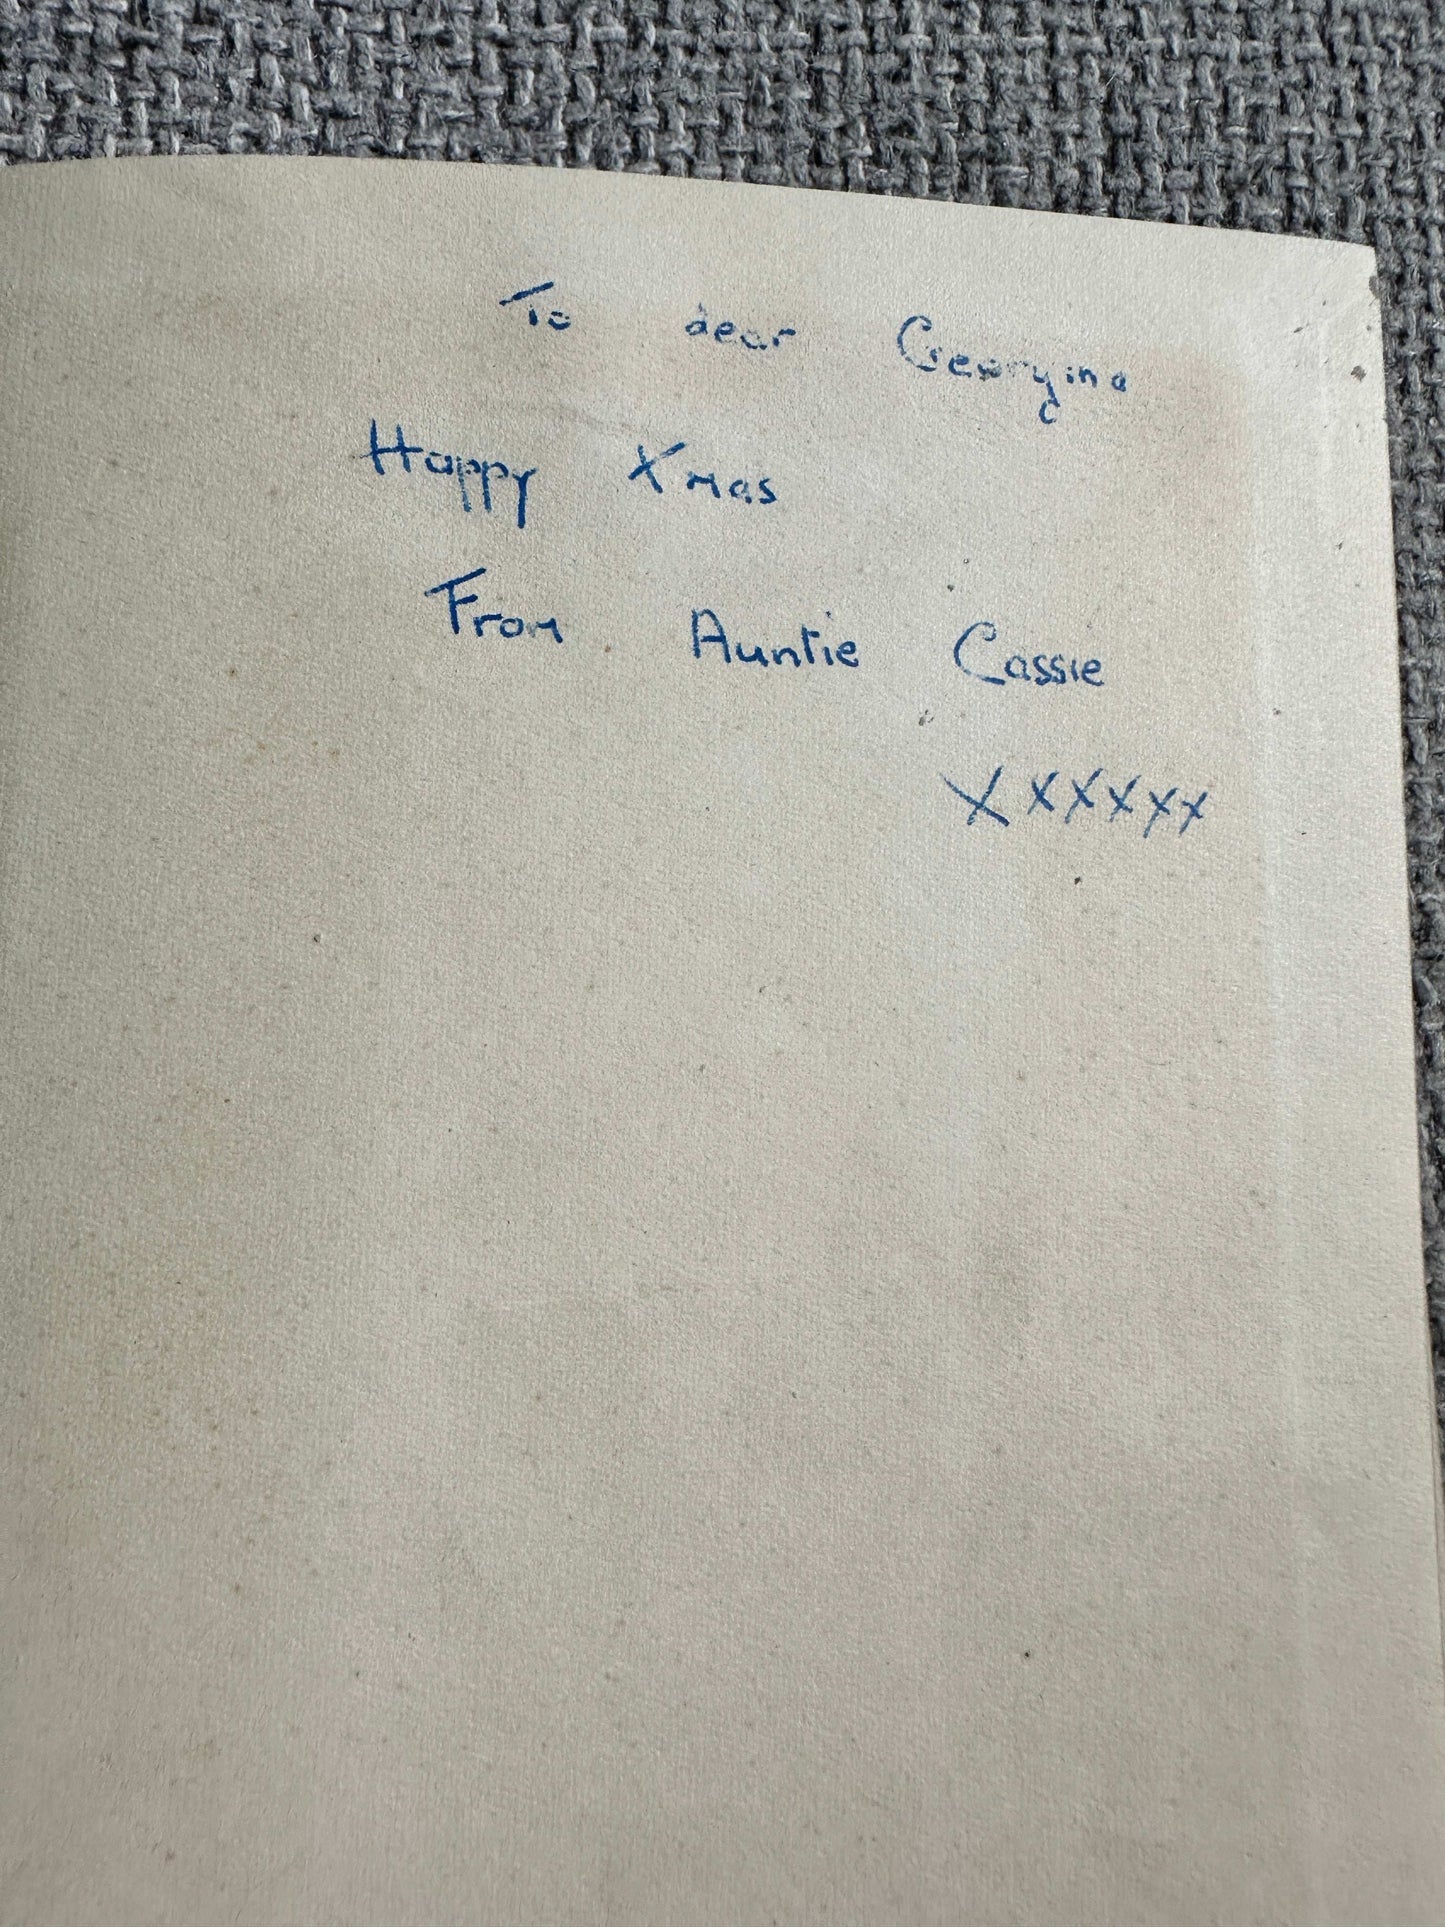 To dear Georgina
Happy Xmas
From Auntie Cassie
Xxxxxx